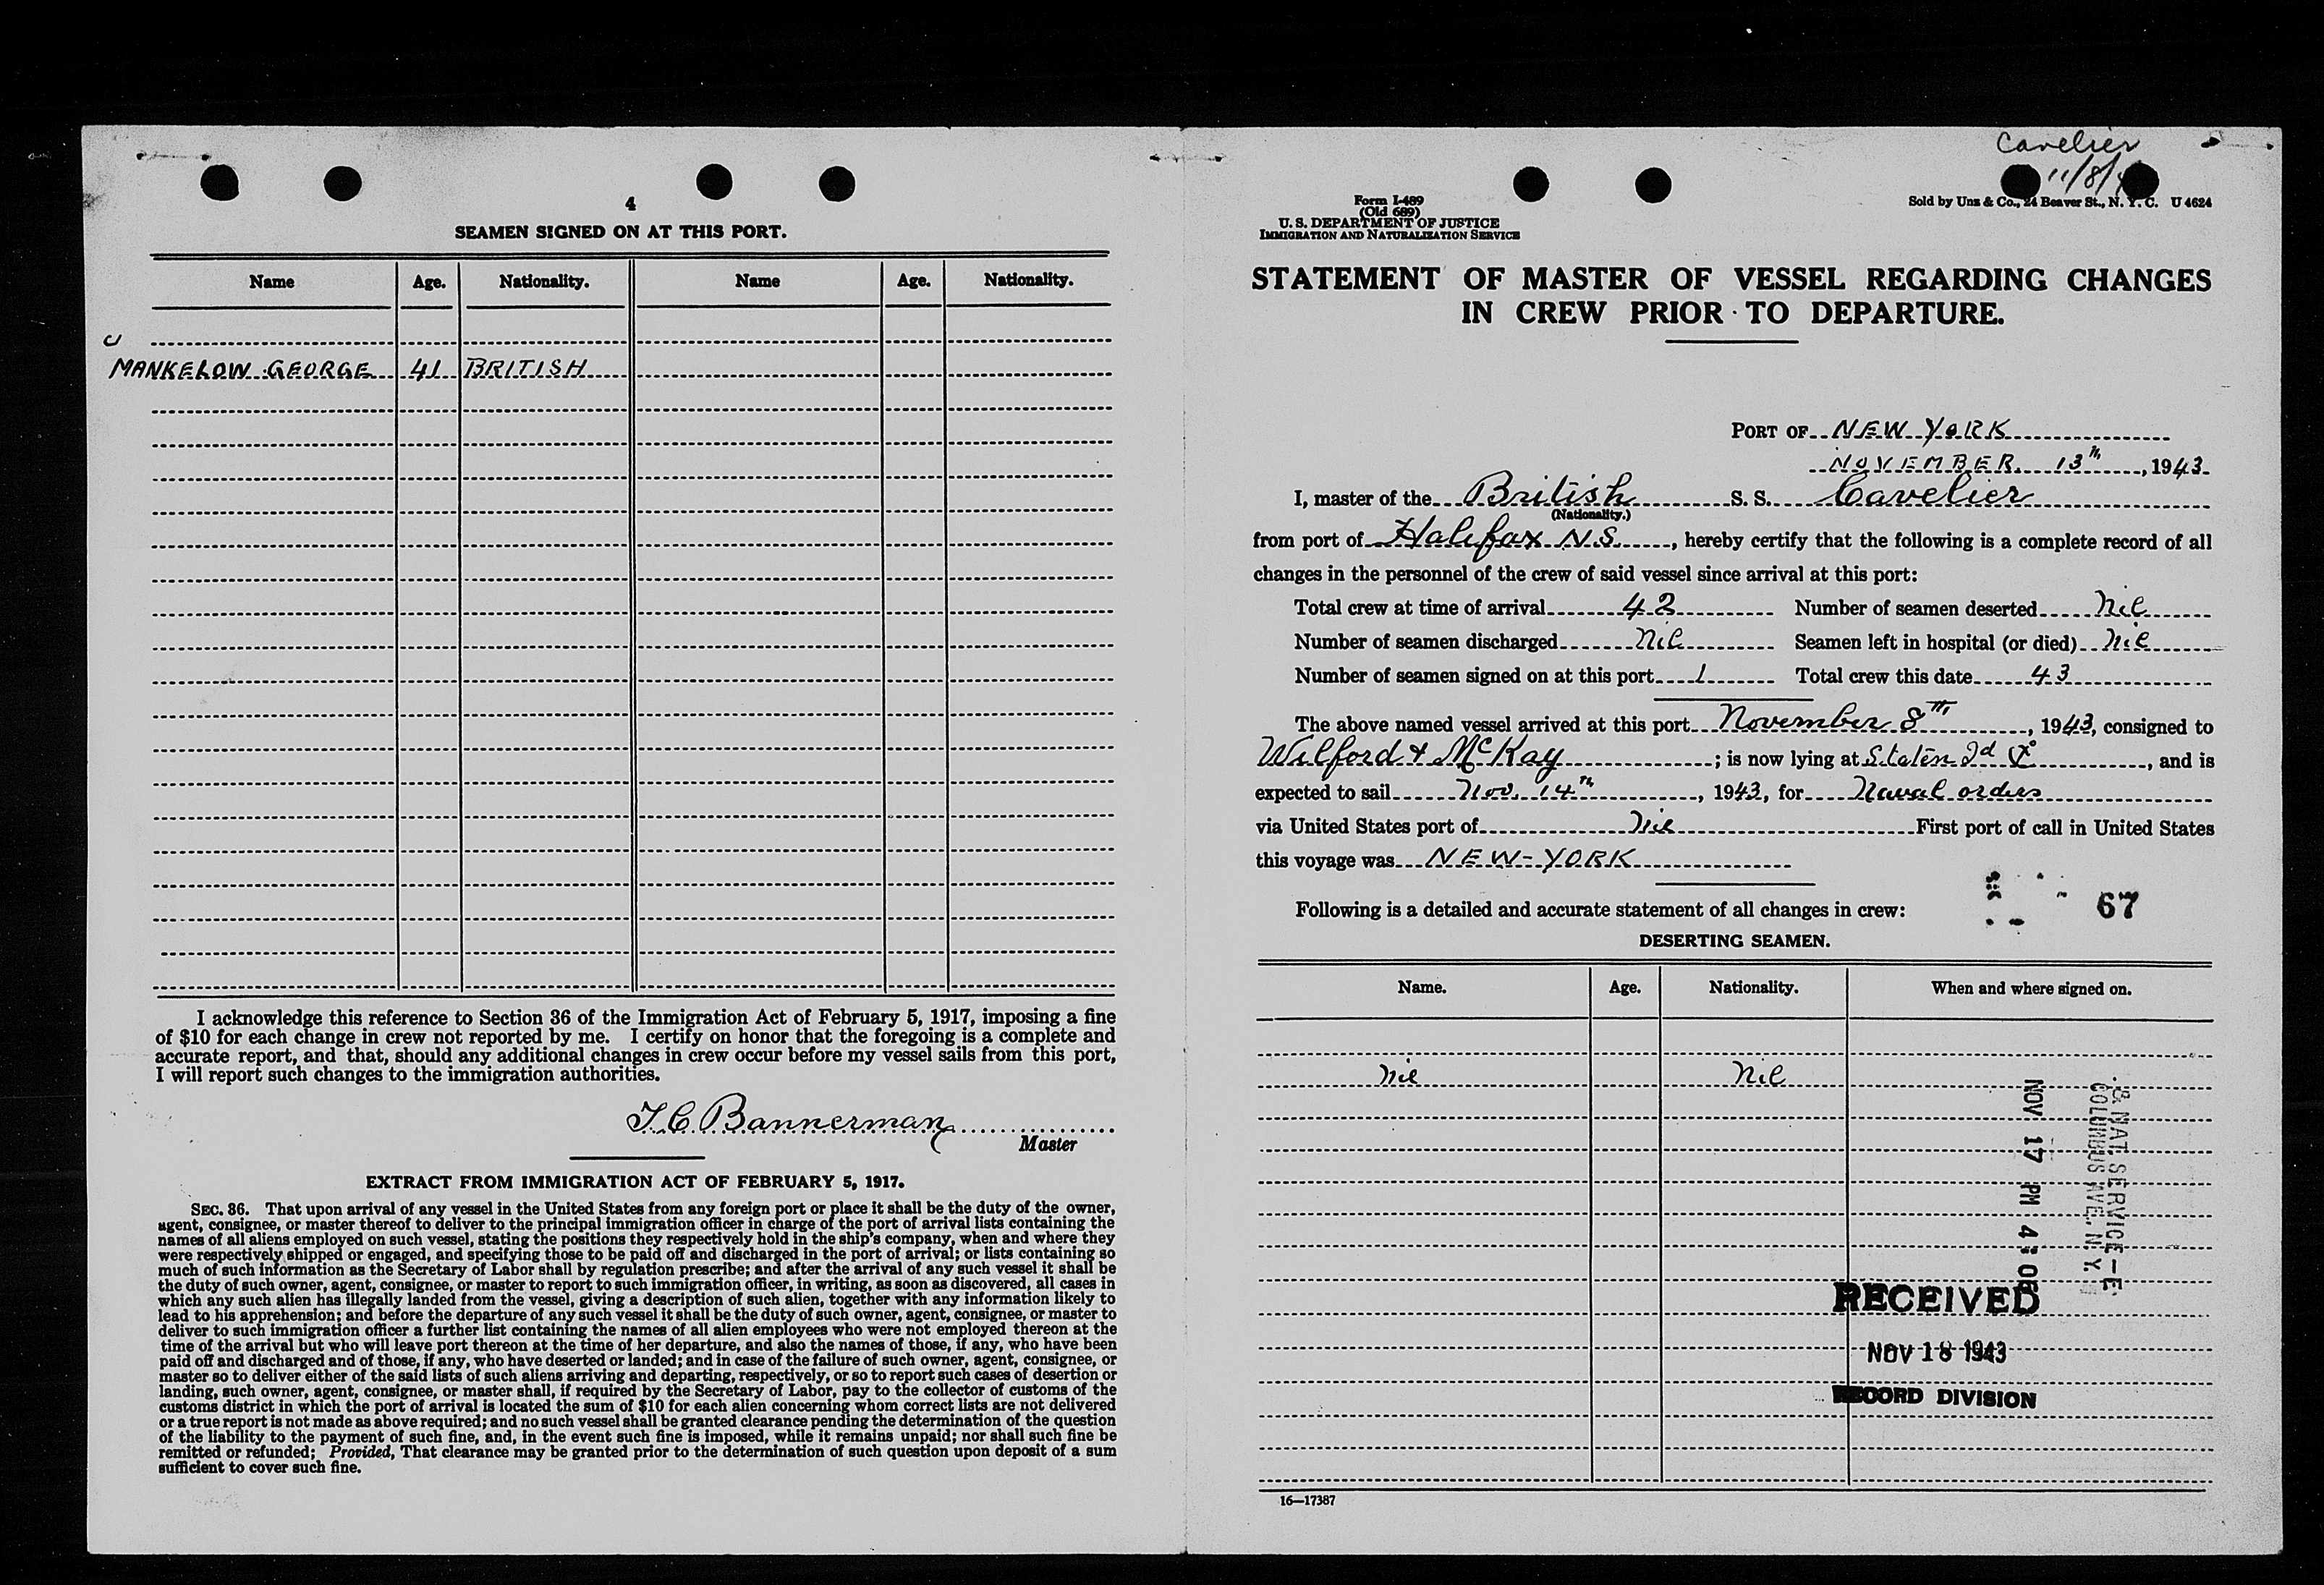 4
SEAMEN SIGNED ON AT THIS PORT.
Name Age. Nationality. Name Age. Nationality.
MANKELOW GEORGE 41 BRITISH
I acknowledge this reference to Section 36 of the Immigration Act of February 5, 1917, imposing a fine
of $10 for each change in crew not reported by me. I certify on honor that the foregoing is a complete and
accurate report, and that, should any additional changes in crew occur before my vessel sails from this port,
I will report such changes to the immigration authorities.
Bannerman
Master
EXTRACT FROM IMMIGRATION ACT OF FEBRUARY 5, 1917.
SEC. 36. That upon arrival of any vessel in the United States from any foreign port or place it shall be the duty of the owner,
agent, consignee, or master thereof to deliver to the principal immigration officer in charge of the port of arrival lists containing the
names of all aliens employed on such vessel, stating the positions they respectively hold in the ship's company, when and where they
were respectively shipped or engaged, and specifying those to be paid off and discharged in the port of arrival; or lists containing so
much of such information as the Secretary of Labor shall by regulation prescribe; and after the arrival of any such vessel it shall be
the duty of such owner, agent, consignee, or master to report to such immigration officer, in writing, as soon as discovered, all cases in
which any such alien has illegally landed from the vessel, giving a description of such alien, together with any information likely to
lead to his apprehension; and before the departure of any such vessel it shall be the duty of such owner, agent, consignee, or master to
deliver to such immigration officer a further list containing the names of all alien employees who were not employed thereon at the
time of the arrival but who will leave port thereon at the time of her departure, and also the names of those, if any, who have been
paid off and discharged and of those, if any, who have deserted or landed; and in case of the failure of such owner, agent, consignee, or
master so to deliver either of the said lists of such aliens arriving and departing, respectively, or so to report such cases of desertion or
landing, such owner, agent, consignee, or master shall, if required by the Secretary of Labor, pay to the collector of customs of the
customs district in which the port of arrival is located the sum of $10 for each alien concerning whom correct lists are not delivered
or a true report is not made as above required; and no such vessel shall be granted clearance pending the determination of the question
of the liability to the payment of such fine, and, in the event such fine is imposed, while it remains unpaid; nor shall such fine be
remitted or refunded; Provided, That clearance may be granted prior to the determination of such question upon deposit of a sum
sufficient to cover such fine.
Cavelier
11/8/
Form I-489
(Old 689)
U. S. DEPARTMENT OF JUSTICE
IMMIGRATION AND NATURALIZATION SERVICE
Sold by Unz & Co., 24 Beaver St., N. Y. C. U 4624
STATEMENT OF MASTER OF VESSEL REGARDING CHANGES
IN CREW PRIOR TO DEPARTURE.
PORT OF NEW YORK
NOVEMBER 13th, 1943
I, master of the British S. S. Cavelier
(Nationality.)
from port of Halifax N.S., hereby certify that the following is a complete record of all
changes in the personnel of the crew of said vessel since arrival at this port:
Total crew at time of arrival 42 Number of seamen deserted Nil
Number of seamen discharged Nil Seamen left in hospital (or died) Nil
Number of seamen signed on at this port 1 Total crew this date 43
The above named vessel arrived at this port November 8TH, 1943, consigned to
Wilford & McKay; is now lying at Staten Id, and is
expected to sail Nov. 14th, 1943, for Naval orders
via United States port of Nil First port of call in United States
this voyage was NEW-YORK
67
Following is a detailed and accurate statement of all changes in crew:
DESERTING SEAMEN.
Name. Age. Nationality. When and where signed on.
Nil Nil
& NAT. SERVICE-E.
COLUMBUS AVE., N. Y.
NOV 17 PM 4:00
RECEIVED
NOV 18 1943
RECORD DIVISION
16—17387